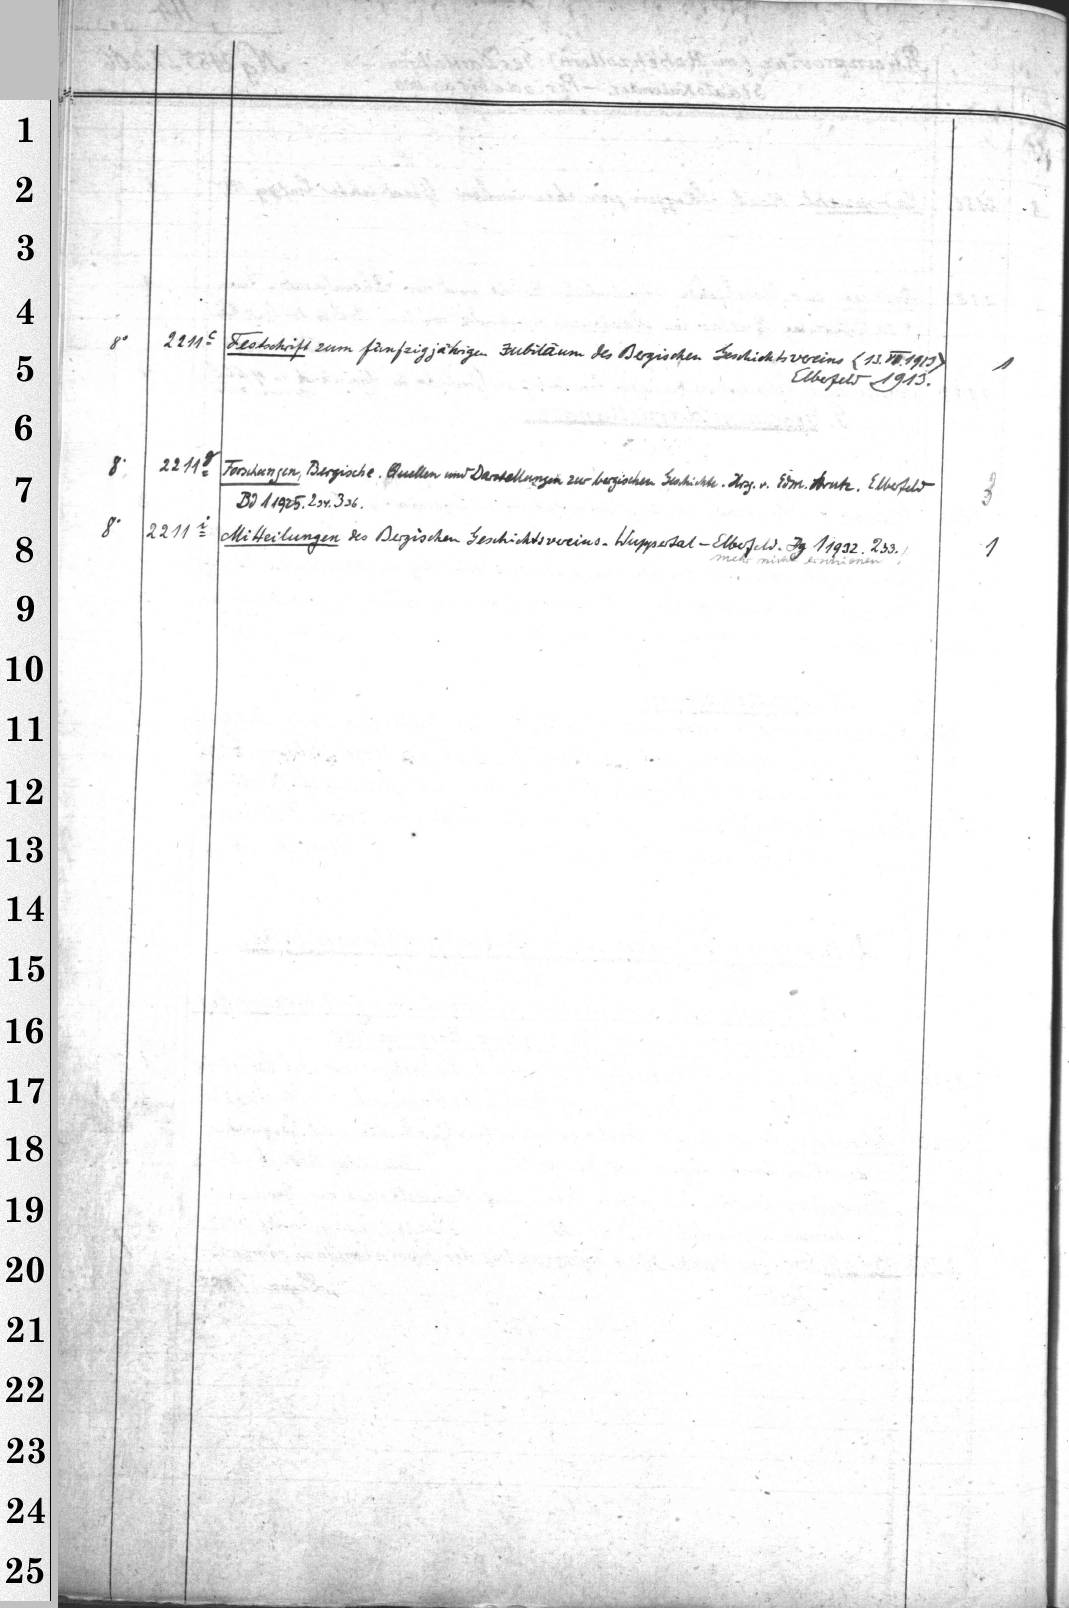 1
2
3
4
8° 2211c Festschrift zum fünfzigjährigen Jubiläum des Bergischen Geschichtsvereins (13. VII. 1913) 1
5
Elberfeld 1913.
6
8° 2211g Forschungen, Bergische. Quellen und Darstellungen zur bergischen Geschichte. Hrsg. v. Edm. Strutz. Elberfeld 3
7
Bd 1 1925. 2 34. 3 36.
8° 2211i Mitteilungen des Bergischen Geschichtsvereins. Wuppertal-Elberfeld. Jg 1 1932. 2 33. 1
8
mehr nicht erschienen
9
10
11
12
13
14
15
16
17
18
19
20
21
22
23
24
25